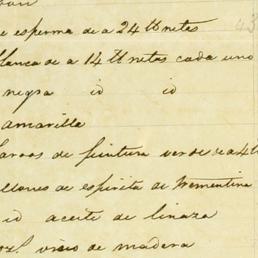 e esperma de a 24 lb netas
lanca de a 14 lb netas cada uno
negra id id
amarilla
arros de pintura verde de a 4 lb
llones de espirita de trementina
id aceite de linaza
vicio de madera